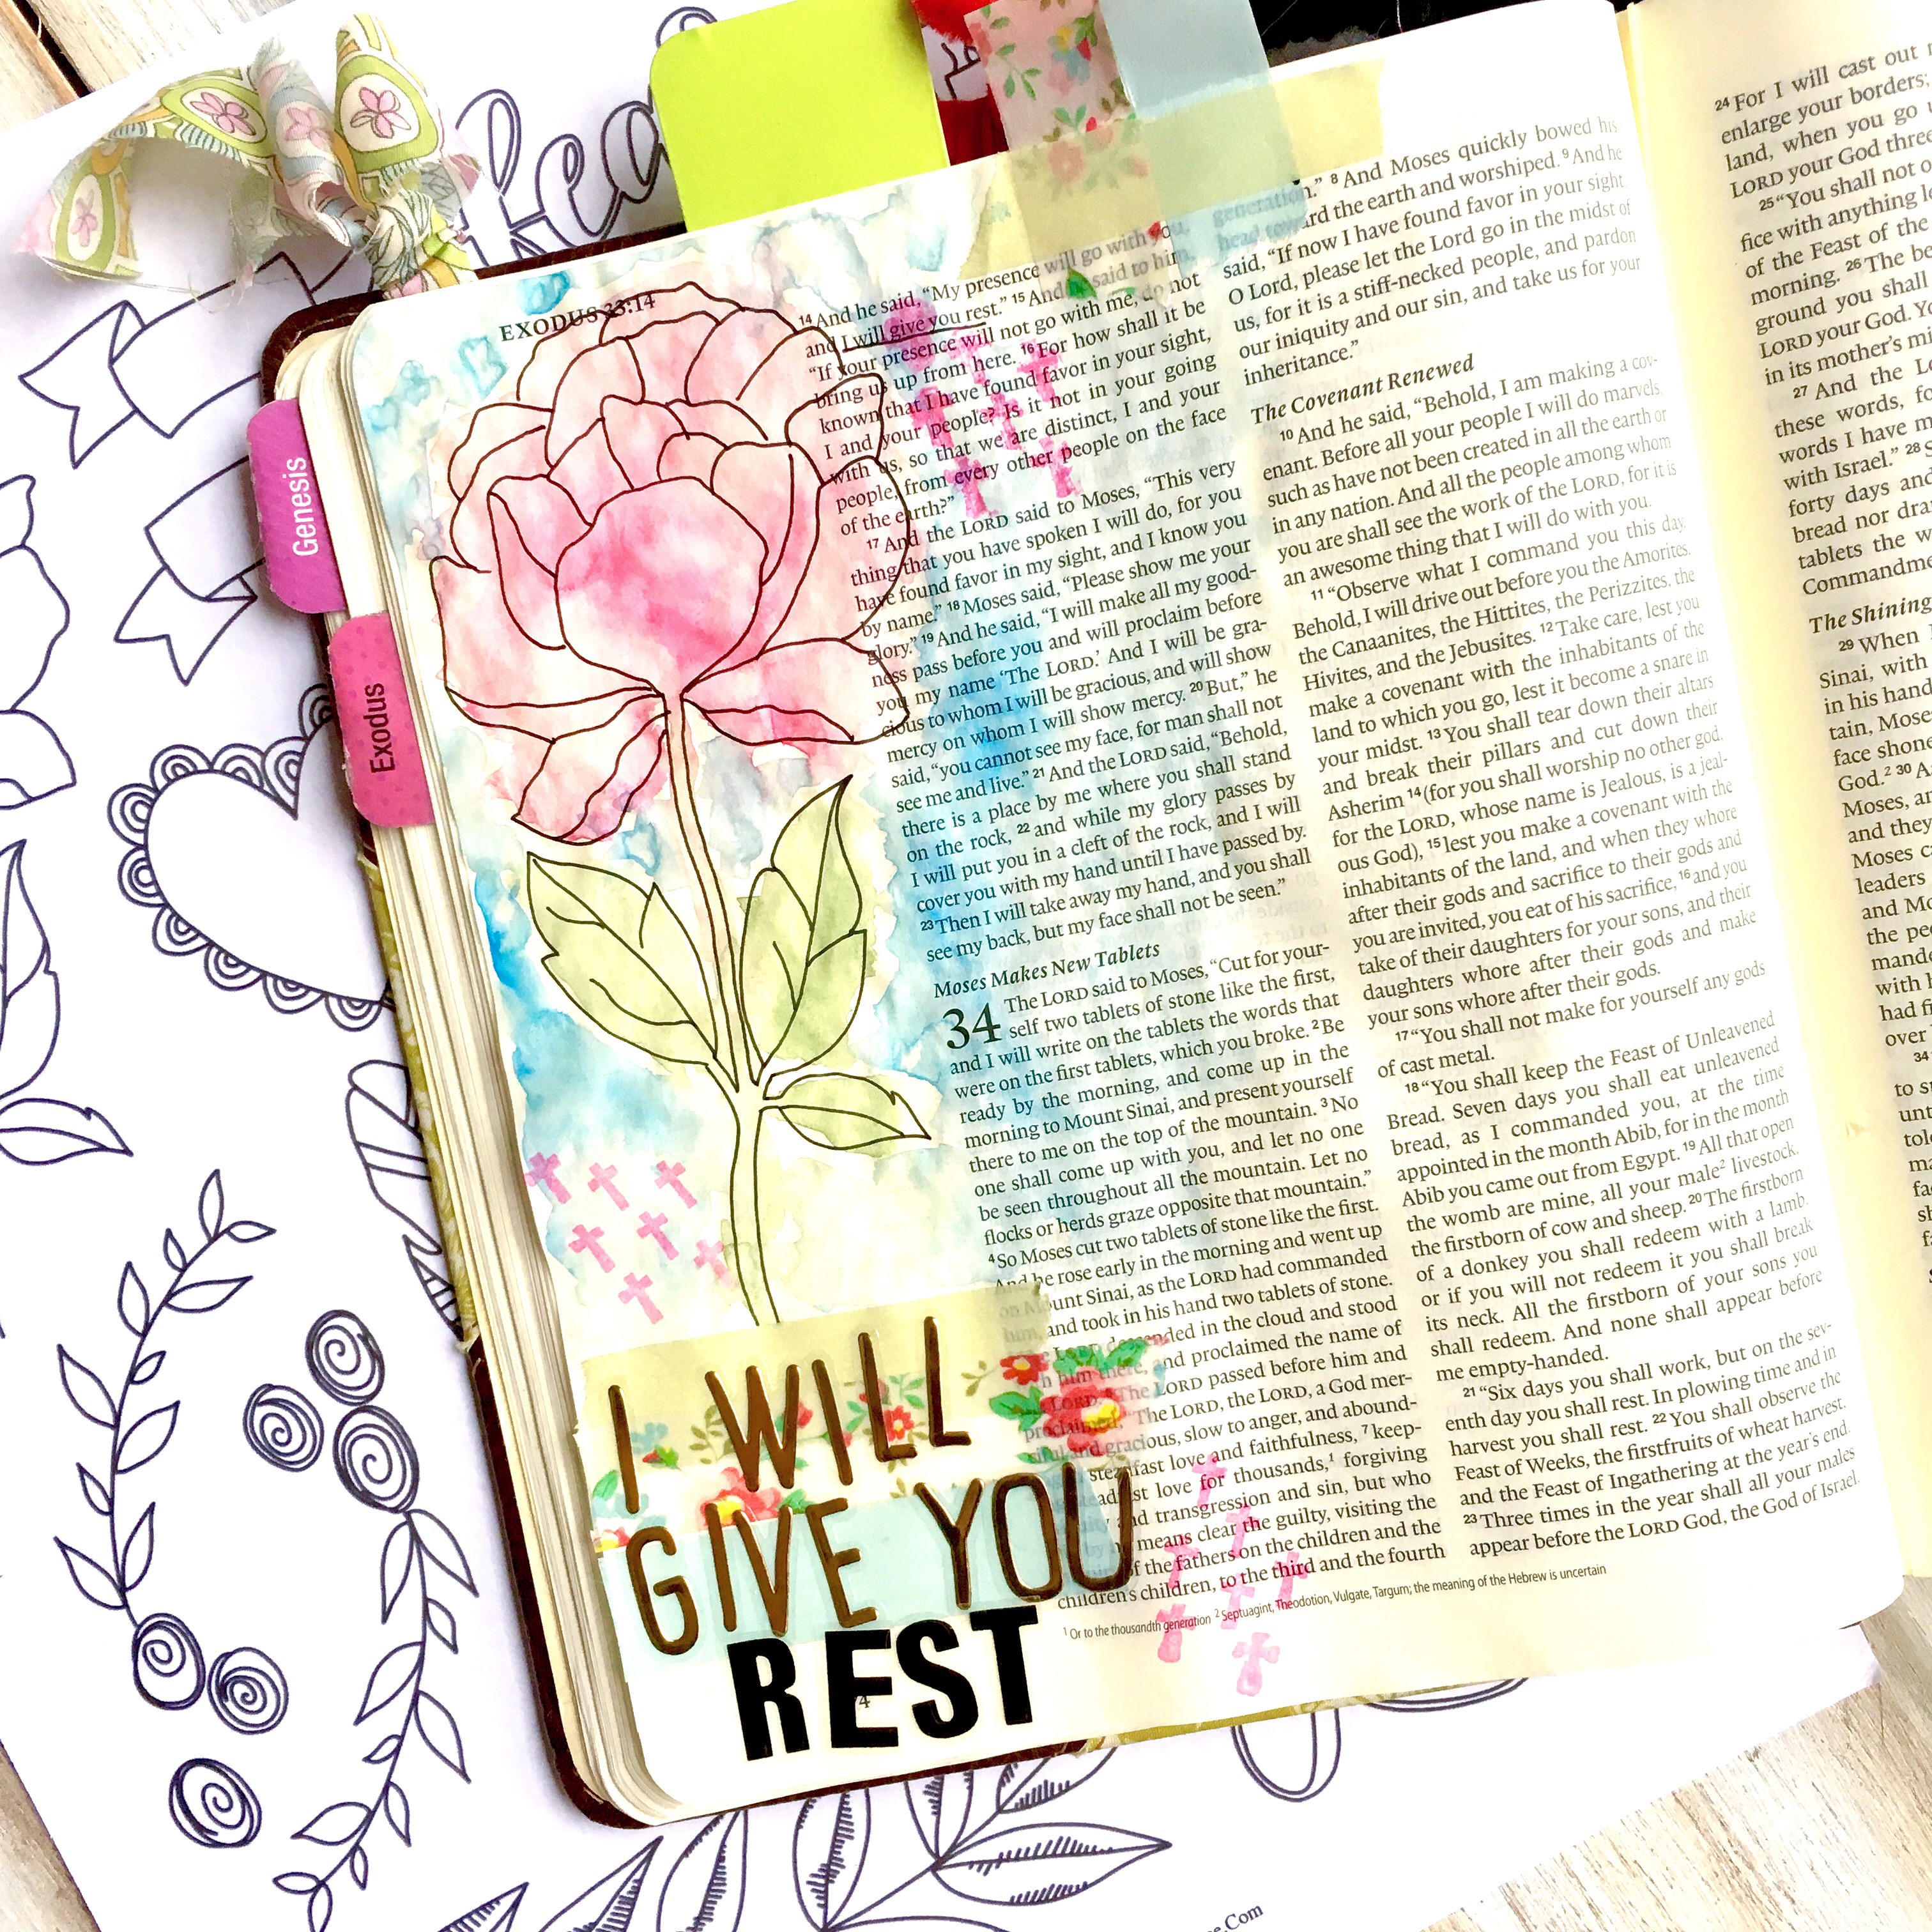 Genesis
Exodus
EXODUS 33:14
14 And he said, “My presence will go with you,
and I will give you rest.” 15 And he said to him,
“If your presence will not go with me, do not
bring us up from here. 16 For how shall it be
known that I have found favor in your sight,
I and your people? Is it not in your going
with us, so that we are distinct, I and your
people, from every other people on the face
of the earth?”
17 And the LORD said to Moses, “This very
thing that you have spoken I will do, for you
have found favor in my sight, and I know you
by name.” 18 Moses said, “Please show me your
glory.” 19 And he said, “I will make all my good-
ness pass before you and will proclaim before
you my name ‘The LORD.’ And I will be gra-
cious to whom I will be gracious, and will show
mercy on whom I will show mercy. 20 But,” he
said, “you cannot see my face, for man shall not
see me and live.” 21 And the LORD said, “Behold,
there is a place by me where you shall stand
on the rock, 22 and while my glory passes by
I will put you in a cleft of the rock, and I will
cover you with my hand until I have passed by.
23 Then I will take away my hand, and you shall
see my back, but my face shall not be seen.”
Moses Makes New Tablets
34 The LORD said to Moses, “Cut for your-
self two tablets of stone like the first,
and I will write on the tablets the words that
were on the first tablets, which you broke. 2 Be
ready by the morning, and come up in the
morning to Mount Sinai, and present yourself
there to me on the top of the mountain. 3 No
one shall come up with you, and let no one
be seen throughout all the mountain. Let no
flocks or herds graze opposite that mountain.”
4 So Moses cut two tablets of stone like the first.
And he rose early in the morning and went up
on Mount Sinai, as the LORD had commanded
him, and took in his hand two tablets of stone.
LORD descended in the cloud and stood
him there, and proclaimed the name of
LORD. The LORD passed before him and
proclaimed, “The LORD, the LORD, a God mer-
and gracious, slow to anger, and abound-
steadfast love and faithfulness, 7 keep-
love for thousands,1 forgiving
and transgression and sin, but who
means clear the guilty, visiting the
of the fathers on the children and the
children's children, to the third and the fourth
I WILL
GIVE YOU
REST
1 Or to the thousandth generation 2 Septuagint, Theodotion, Vulgate, Targum; the meaning of the Hebrew is uncertain
generation.” 8 And Moses quickly bowed his
head toward the earth and worshiped. 9 And he
said, “If now I have found favor in your sight,
O Lord, please let the Lord go in the midst of
us, for it is a stiff-necked people, and pardon
our iniquity and our sin, and take us for your
inheritance.”
The Covenant Renewed
10 And he said, “Behold, I am making a cov-
enant. Before all your people I will do marvels,
such as have not been created in all the earth or
in any nation. And all the people among whom
you are shall see the work of the LORD, for it is
an awesome thing that I will do with you.
11 “Observe what I command you this day.
Behold, I will drive out before you the Amorites,
the Canaanites, the Hittites, the Perizzites, the
Hivites, and the Jebusites. 12 Take care, lest you
make a covenant with the inhabitants of the
land to which you go, lest it become a snare in
your midst. 13 You shall tear down their altars
and break their pillars and cut down their
Asherim 14 (for you shall worship no other god,
for the LORD, whose name is Jealous, is a jeal-
ous God), 15 lest you make a covenant with the
inhabitants of the land, and when they whore
after their gods and sacrifice to their gods and
you are invited, you eat of his sacrifice, 16 and you
take of their daughters for your sons, and their
daughters whore after their gods and make
your sons whore after their gods.
17 “You shall not make for yourself any gods
of cast metal.
18 “You shall keep the Feast of Unleavened
Bread. Seven days you shall eat unleavened
bread, as I commanded you, at the time
appointed in the month Abib, for in the month
Abib you came out from Egypt. 19 All that open
the womb are mine, all your male2 livestock,
the firstborn of cow and sheep. 20 The firstborn
of a donkey you shall redeem with a lamb,
or if you will not redeem it you shall break
its neck. All the firstborn of your sons you
shall redeem. And none shall appear before
me empty-handed.
21 “Six days you shall work, but on the sev-
enth day you shall rest. In plowing time and in
harvest you shall rest. 22 You shall observe the
Feast of Weeks, the firstfruits of wheat harvest,
and the Feast of Ingathering at the year's end.
23 Three times in the year shall all your males
appear before the LORD God, the God of Israel.
24 For I will cast out
enlarge your borders;
land, when you go
LORD your God three
25 “You shall not
fice with anything
of the Feast of the
morning. 26 The
ground you shall
LORD your God.
in its mother's
27 And the
these words,
words I have
with Israel.” 28
forty days and
bread nor
tablets the
The Shining
29 When
Sinai, with
in his hand
Moses
face shone
God.2 30
Moses, and
and they
Moses
leaders
and
the
with
had
over
34
to